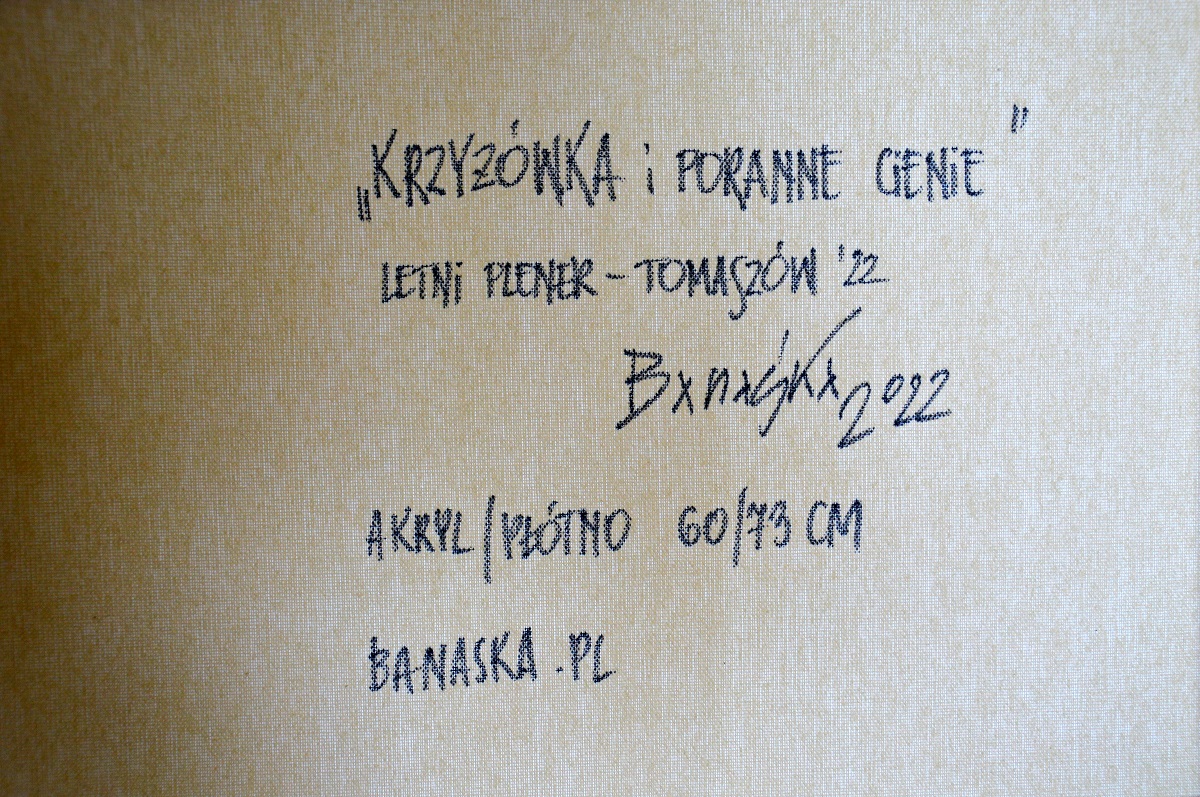 „KRZYŻÓWKA i PORANNE CIENIE”
LETNI PLENER – TOMASZÓW '22
Banaśka 2022
AKRYL/PŁÓTNO 60/73 CM
BANASKA.PL